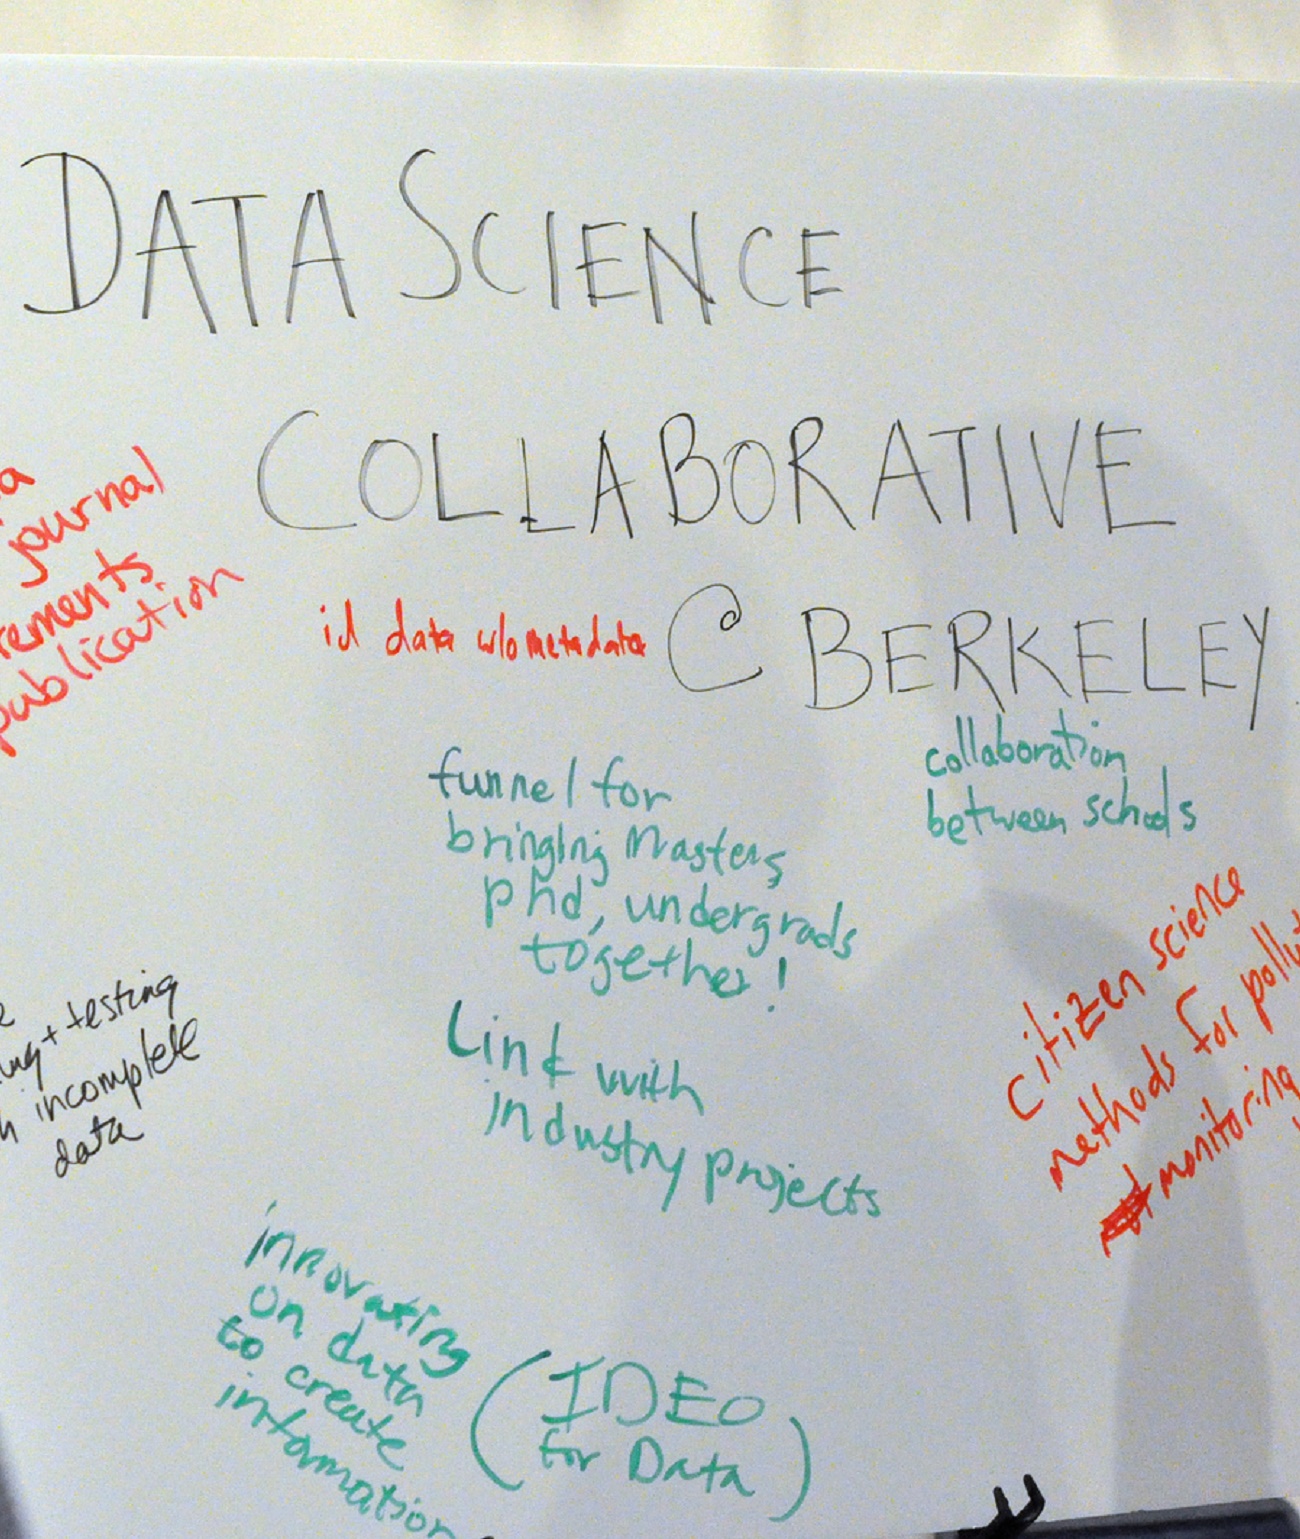 DATA SCIENCE
COLLABORATIVE
@ BERKELEY
a
journal
rements
publication
id data w/o metadata
funnel for
bringing masters
phd, undergrads
together!
collaboration
between schools
Link with
industry projects
citizen science
methods for pollut
monitoring
e
ing + testing
h incomplete
data
innovating
on data
to create
information
(IDEO
for Data)